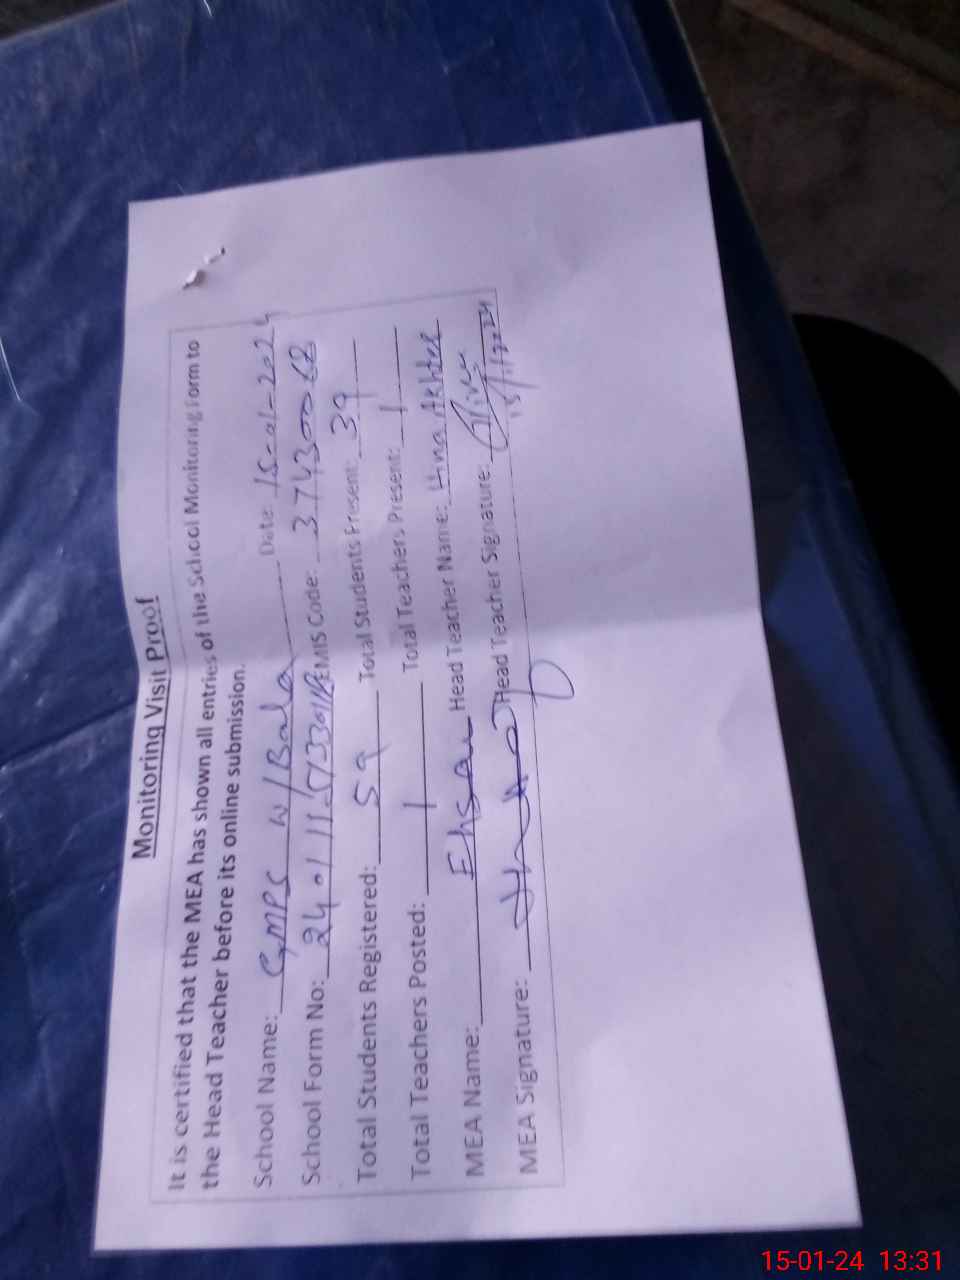 Monitoring Visit Proof
It is certified that the MEA has shown all entries of the School Monitoring Form to
the Head Teacher before its online submission.
School Name: GMPS W/Bala Date: 15-01-2024
School Form No: EMIS Code: 37430068
Total Students Registered: 59 Total Students Present: 39
Total Teachers Posted: 1 Total Teachers Present: 1
MEA Name: Ehsan Head Teacher Name: Hina Akhter
MEA Signature: Head Teacher Signature:
15/1/2024
15-01-24 13:31